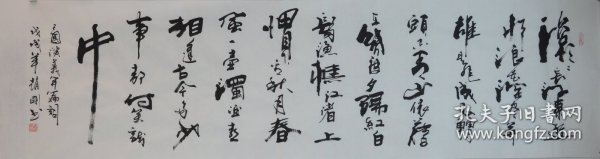 滚滚长江东逝
水浪花淘尽英
雄是非成败转
头空青山依旧
在几度夕阳红白
发渔樵江渚上
惯看秋月春
风一壶浊酒喜
相逢古今多少
事都付笑谈
中
三国演义开篇词
戊戌年
孔夫子旧书网
www.kfzj.com